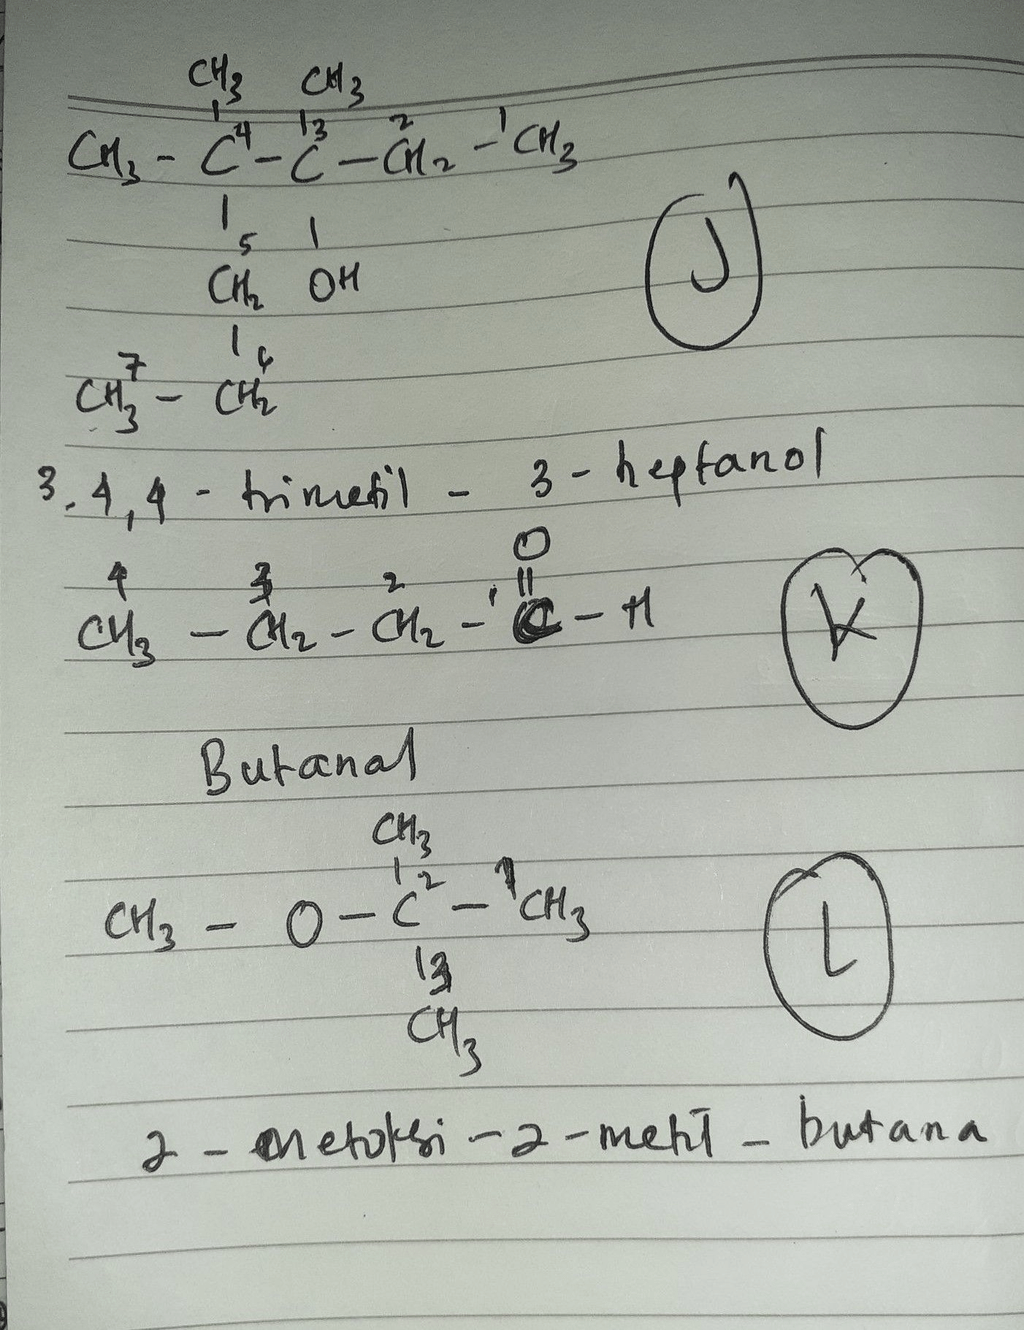 CH3 CH3
CH3 - C4 - C3 - CH2 2 - 1 CH3
5
CH2 OH
J
7 6
CH3 - CH2
3.4,4 - trimetil - 3 - heptanol
O
4 3 2
CH3 - CH2 - CH2 - 1 C - H
K
Butanal
CH3
CH3 - O - C2 - 1 CH3
3
CH3
L
2 - metoksi - 2 - metil - butana